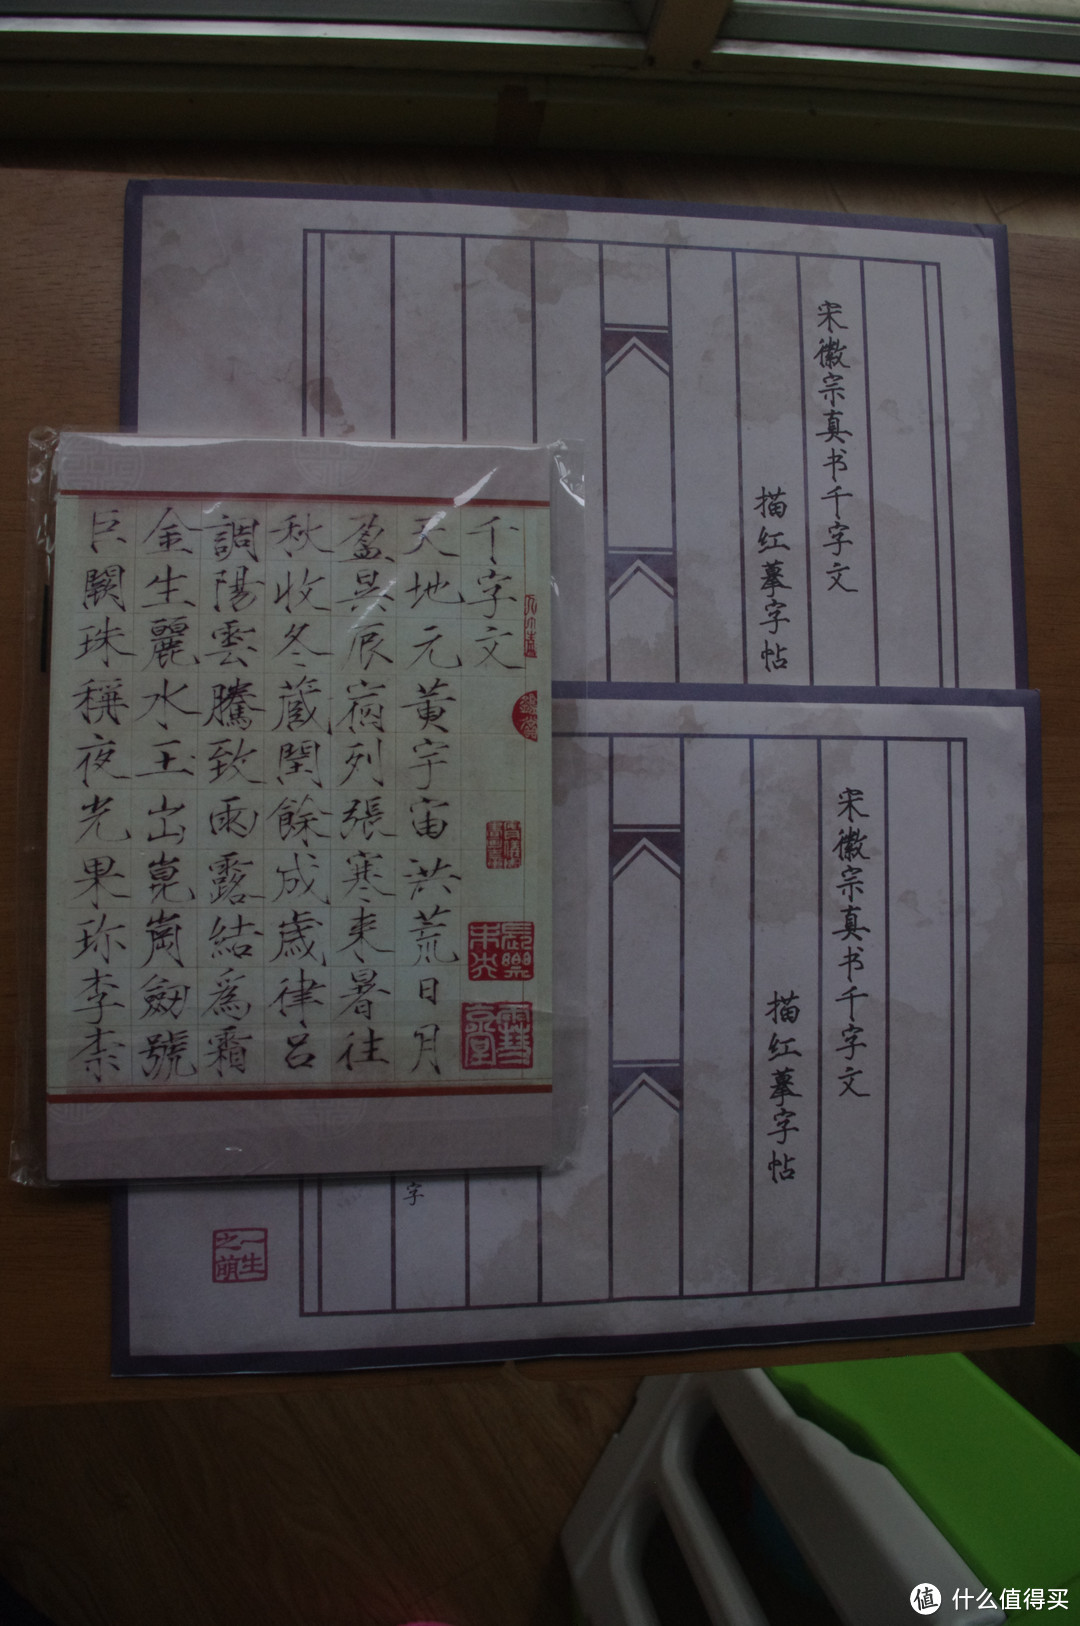 宋徽宗真书千字文
描红摹字帖
千字文
天地元黄宇宙洪荒日月
盈昃辰宿列張寒来暑往
秋收冬蔵閏餘成歳律吕
調陽雲騰致雨露結爲霜
金生麗水玉出崑崗劒號
巨闕珠稱夜光果珎李柰
長樂未央
宋徽宗真书千字文
描红摹字帖
字
一生之萌
值 什么值得买